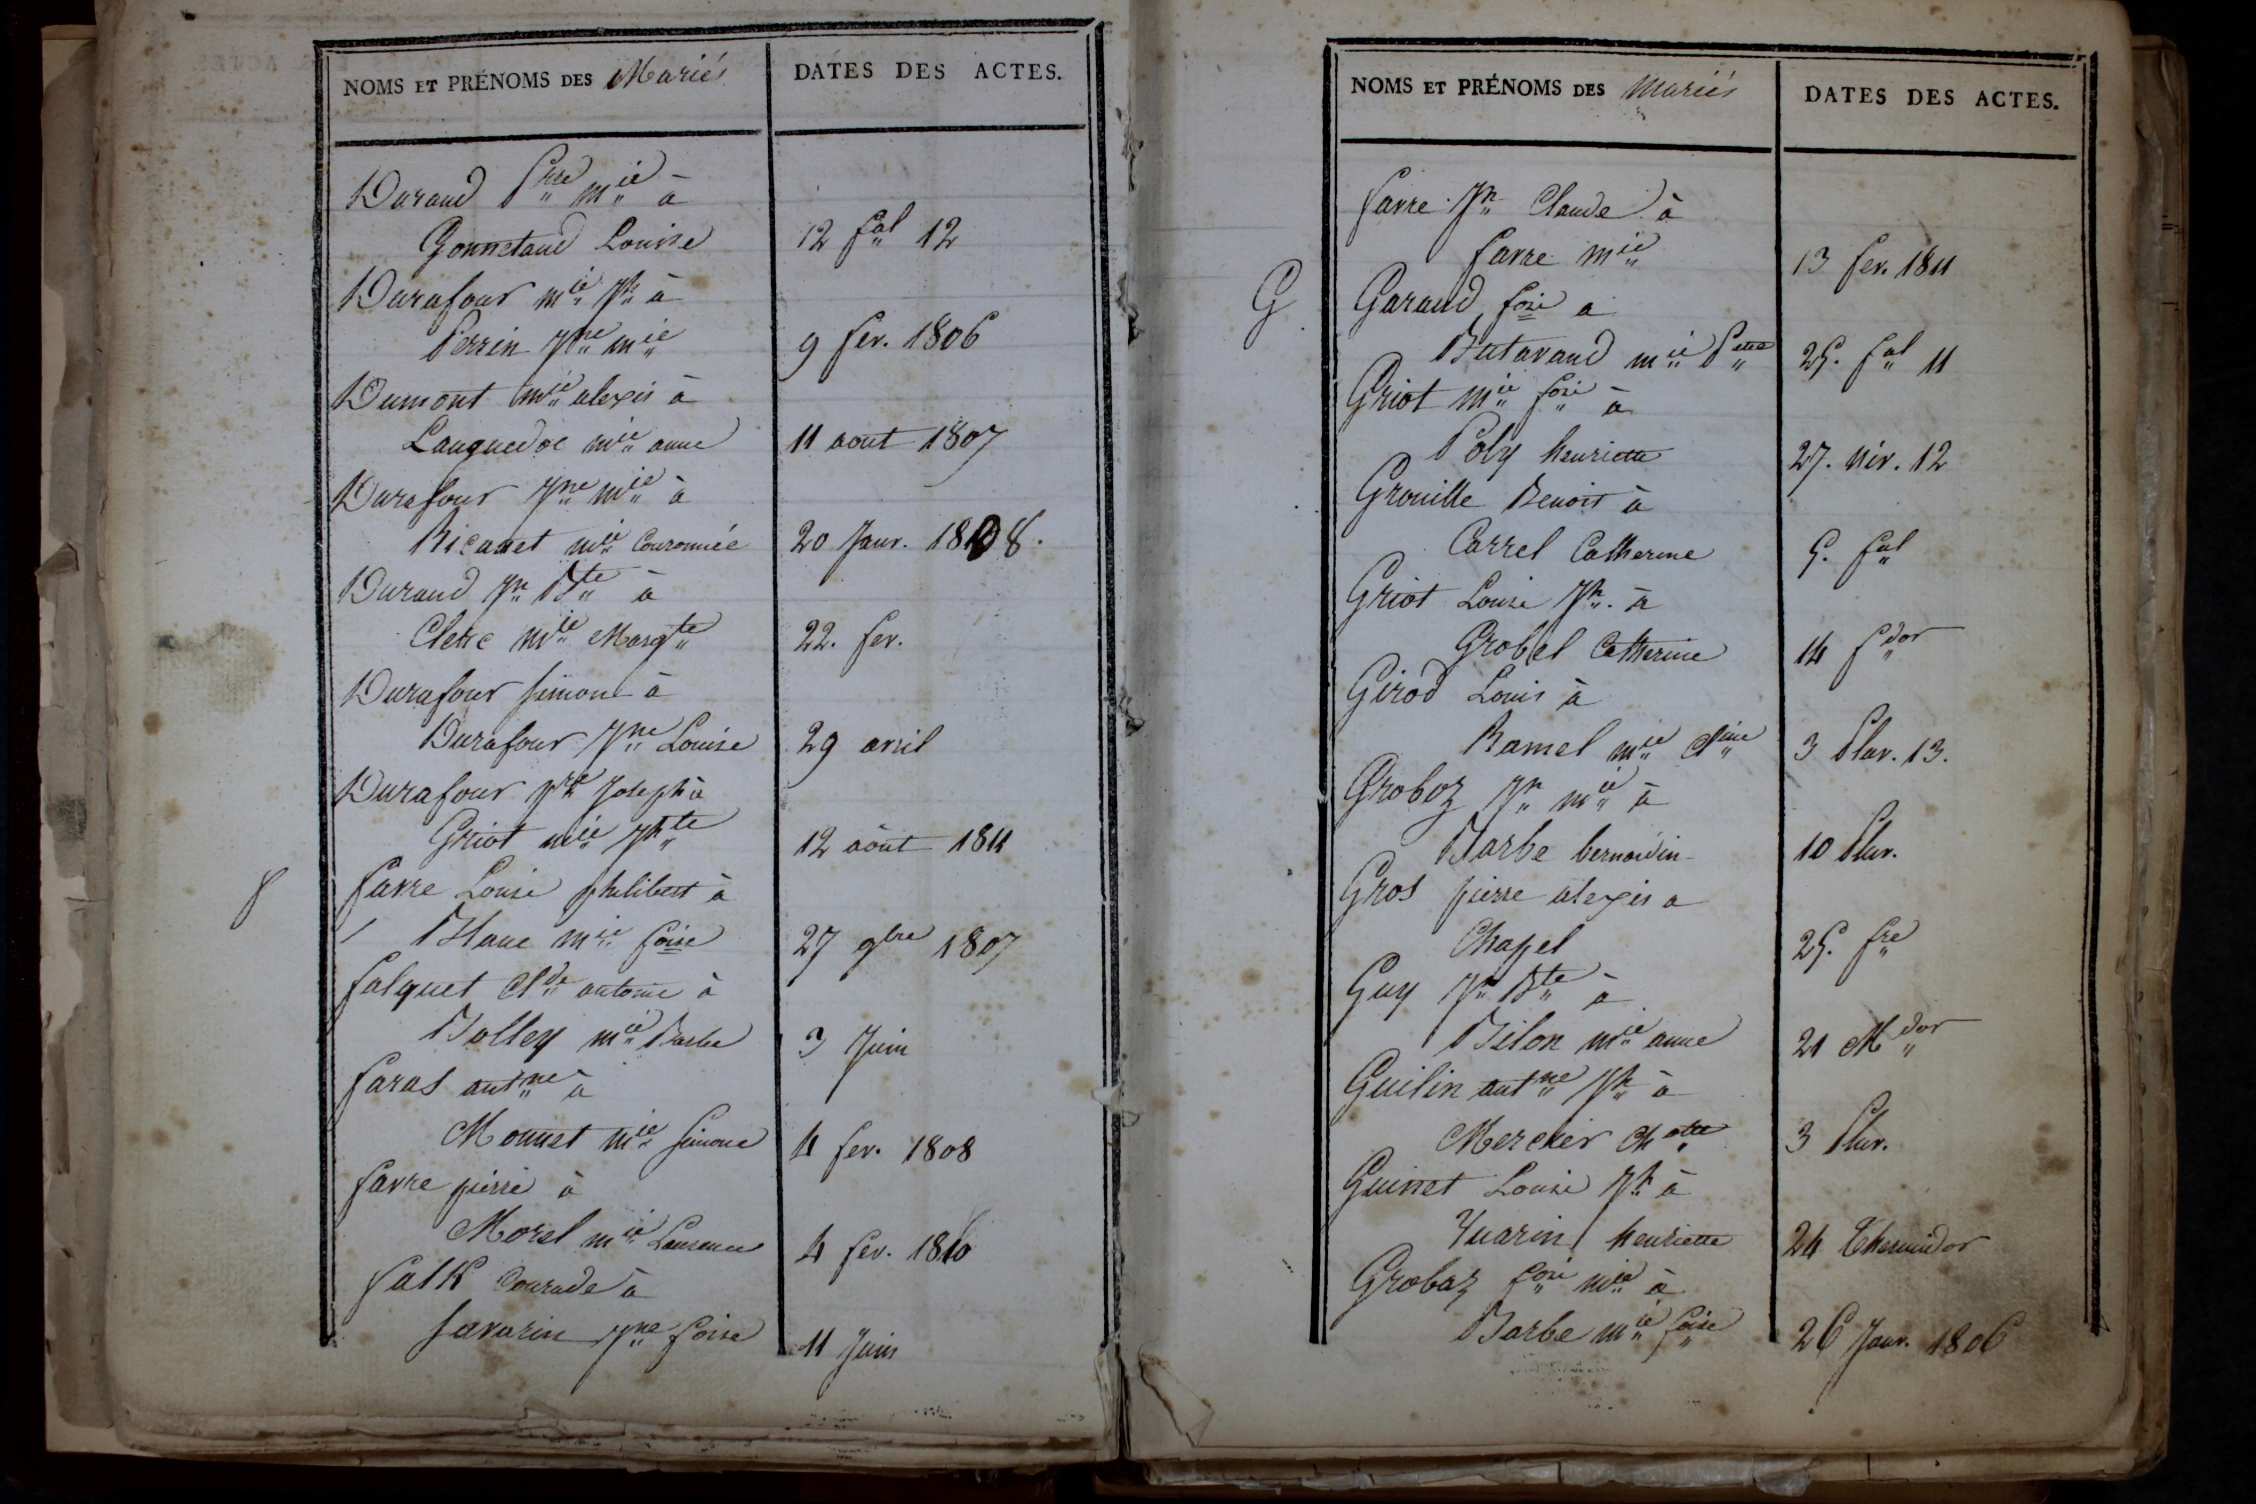 NOMS ET PRÉNOMS DES Mariés
DATES DES ACTES.
Durand Prre Mie à
Gonnetaud Louise 12 fal 12
Durafour mie Jh à
Perrin Jne mie 9 fev. 1806
Dumont mie alexis à
Languedoc mie anne 11 aout 1807
Durafour Jne mie à
Ricanet mie Couronnée 20 Janv. 1808.
Durand Jn Bte à
Clerc mie Margte 22. fev.
Durafour Simon à
Durafour Jne Louise 29 avril
Durafour Jh Joseph à
Griot mie Jhte 12 aôut 1811
f
favre Louis philibert à
Blanc mie foise 27 9bre 1807
falquet Clde antoine à
Bolley mie Barbe 3 Juin
faras antne à
Monnet mie Simone 4 fev. 1808
favre pierre à
Morel mie Laurence 4 fev. 1810
falk Conrade à
Savarin Jne foise 11 Juin
NOMS ET PRÉNOMS DES mariés
DATES DES ACTES.
favre Jn Claude à
favre mie 13 fev. 1811
G
Garaud, fois a
Butavaud mie Pette 25. fal 11
Griot mie fois à
Poly henriette 27. niv. 12
Grouille Benoit à
Carrel Catherine 5. fal
Griot Louis Jh. à
Grobel Catherine 14 fdor
Girod Louis à
Ramel mie Cine 3 Pluv. 13.
Groboz Jn mie à
Barbe bernardin 10 Pluv.
Gros pierre alexis a
Chapel 25. fre
Guy Jn Bte à
Bilon mie anne 21 Mdor
Guilin antne Jh à
Mercier Chotte 3 Pluv.
Guinet Louis Jh à
Yuarin henriette 24 Thermidor
Grobaz fois mie à
Barbe mie foise 26 Janv. 1806